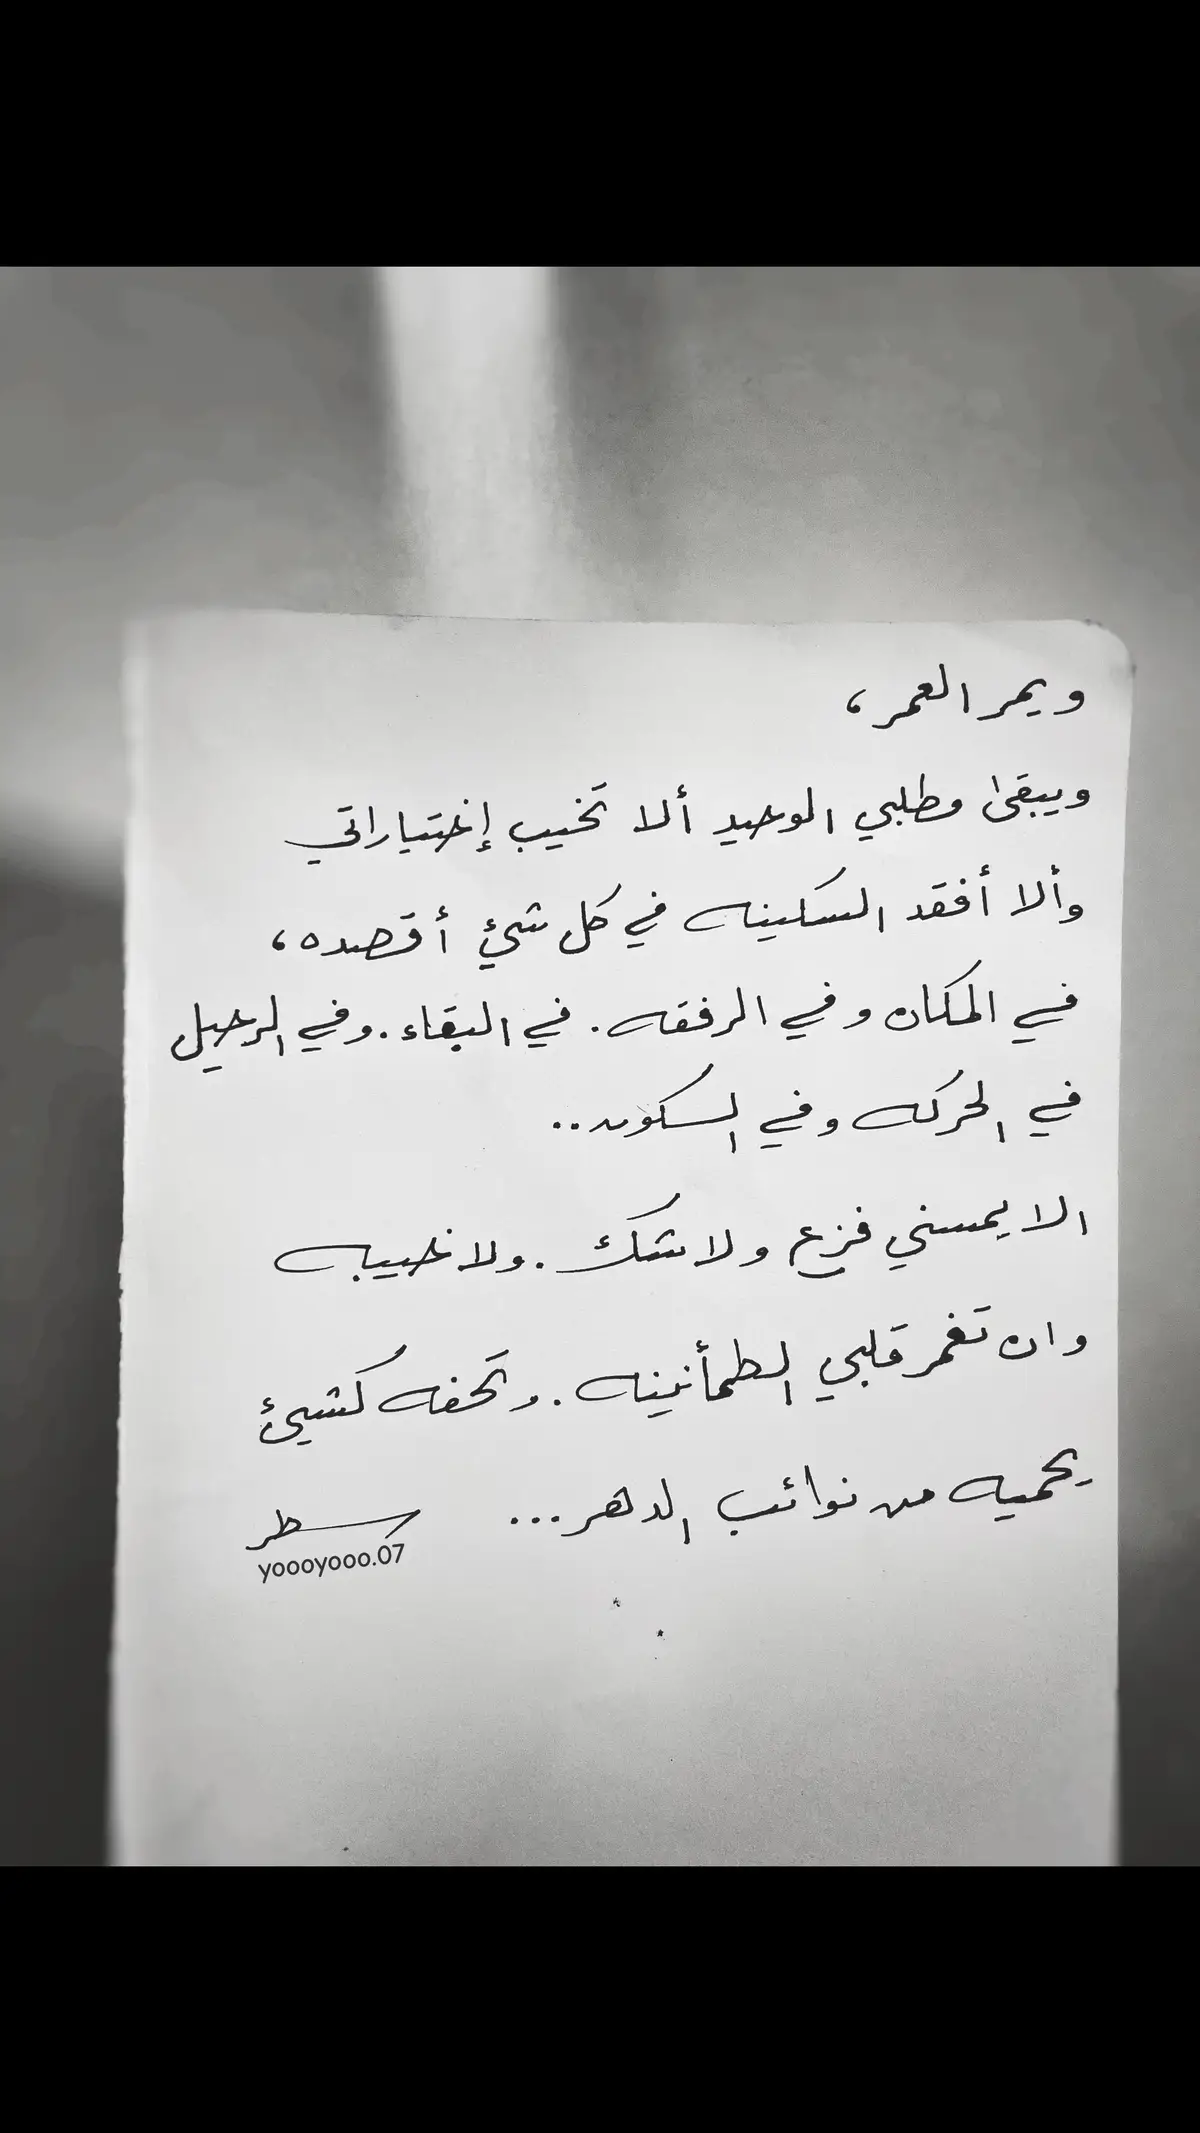 ويمر العمر،
ويبقىٰ مطلبي الوحيد ألا تخيب إختياراتي
وألا أفقد السكينه في كل شيئ أقصده،
في المكان وفي الرفقه. في البقاء. وفي الرحيل
في الحركه وفي السكون..
الا يمسني فزع ولا شك. ولا خيبه
وان تغمر قلبي الطمأنينه. وتحفه كشيئ
يحميه من نوائب الدهر... سطر
yoooyooo.07